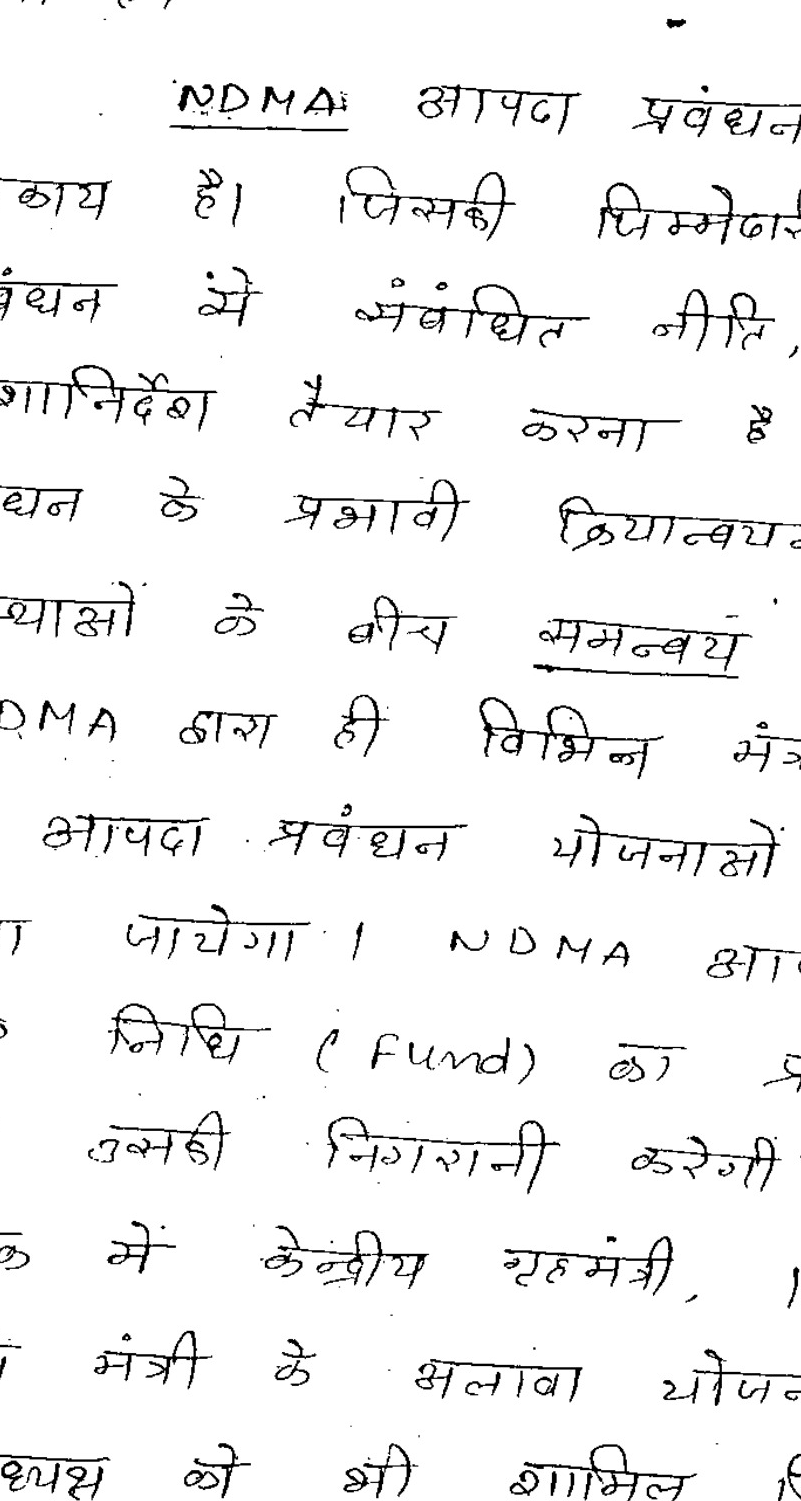 NDMA आपदा प्रबंधन
काय है। जिसकी जिम्मेदार
बंधन से संबंधित नीति,
शानिर्देश तैयार करना है
धन के प्रभावी क्रियान्वयन
थाओं के बीच समन्वय
DMA द्वारा ही विभिन्न मंत्र
आपदा प्रबंधन योजनाओं
जायेगा। NDMA आप
निधि (Fund) का प्र
उसकी निगरानी करेगी
क में केन्द्रीय गृहमंत्री,
मंत्री के अलावा योजन
ध्यक्ष को भी शामिल